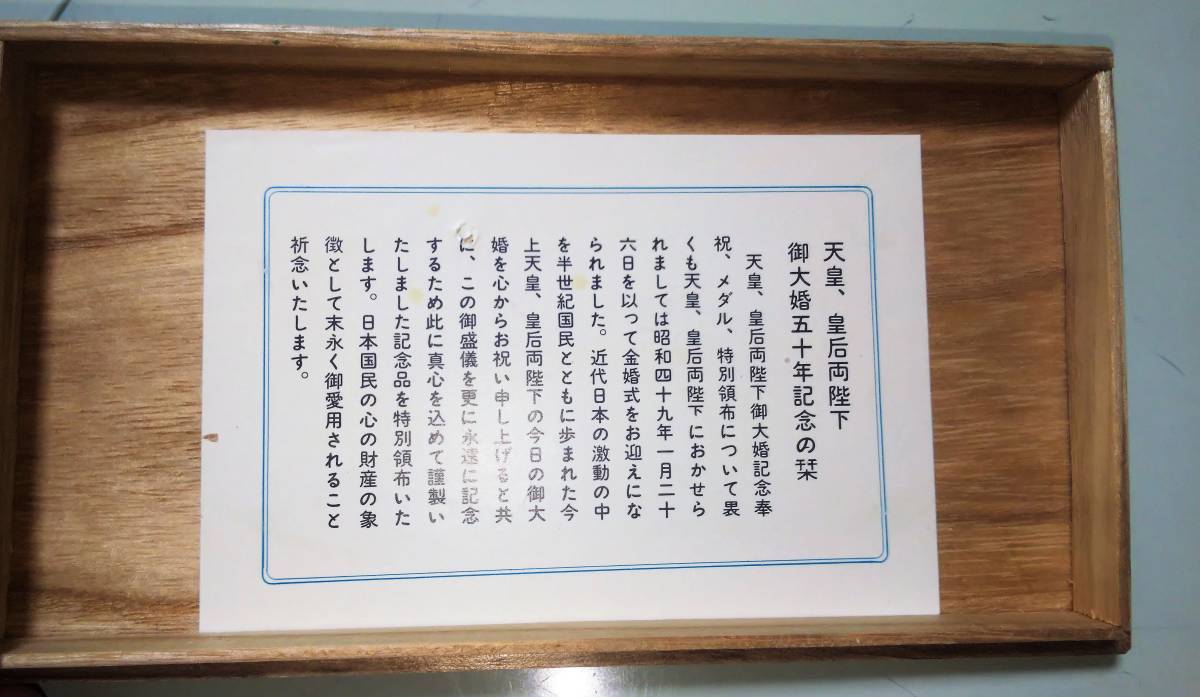 天皇、皇后両陛下
御大婚五十年記念の栞
天皇、皇后両陛下御大婚記念奉
祝、メダル、特別領布について畏
くも天皇、皇后両陛下におかせら
れましては昭和四十九年一月二十
六日を以って金婚式をお迎えにな
られました。近代日本の激動の中
を半世紀国民とともに歩まれた今
上天皇、皇后両陛下の今日の御大
婚を心からお祝い申し上げると共
に、この御盛儀を更に永遠に記念
するため此に真心を込めて謹製い
たしました記念品を特別領布いた
します。日本国民の心の財産の象
徴として末永く御愛用されること
祈念いたします。